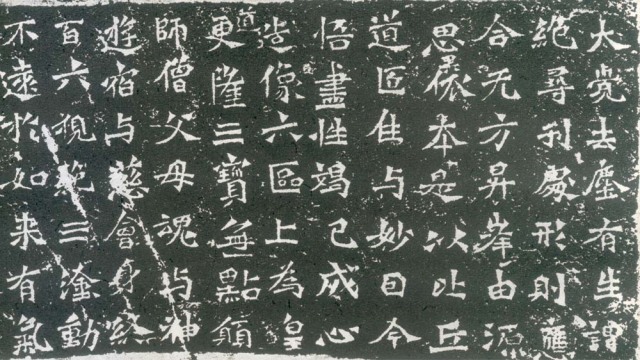 大覺去塵有生謂
絕尋刹厥形則
合无方昇峯由源
思本是以比丘
道匠住与妙因今
悟盡性竭己成心
造像六區上為皇
道更隆三寶無點願
師僧父母魂与神
遊宿与慈會身終
百六視乾三塗動
不遠於如来有氣